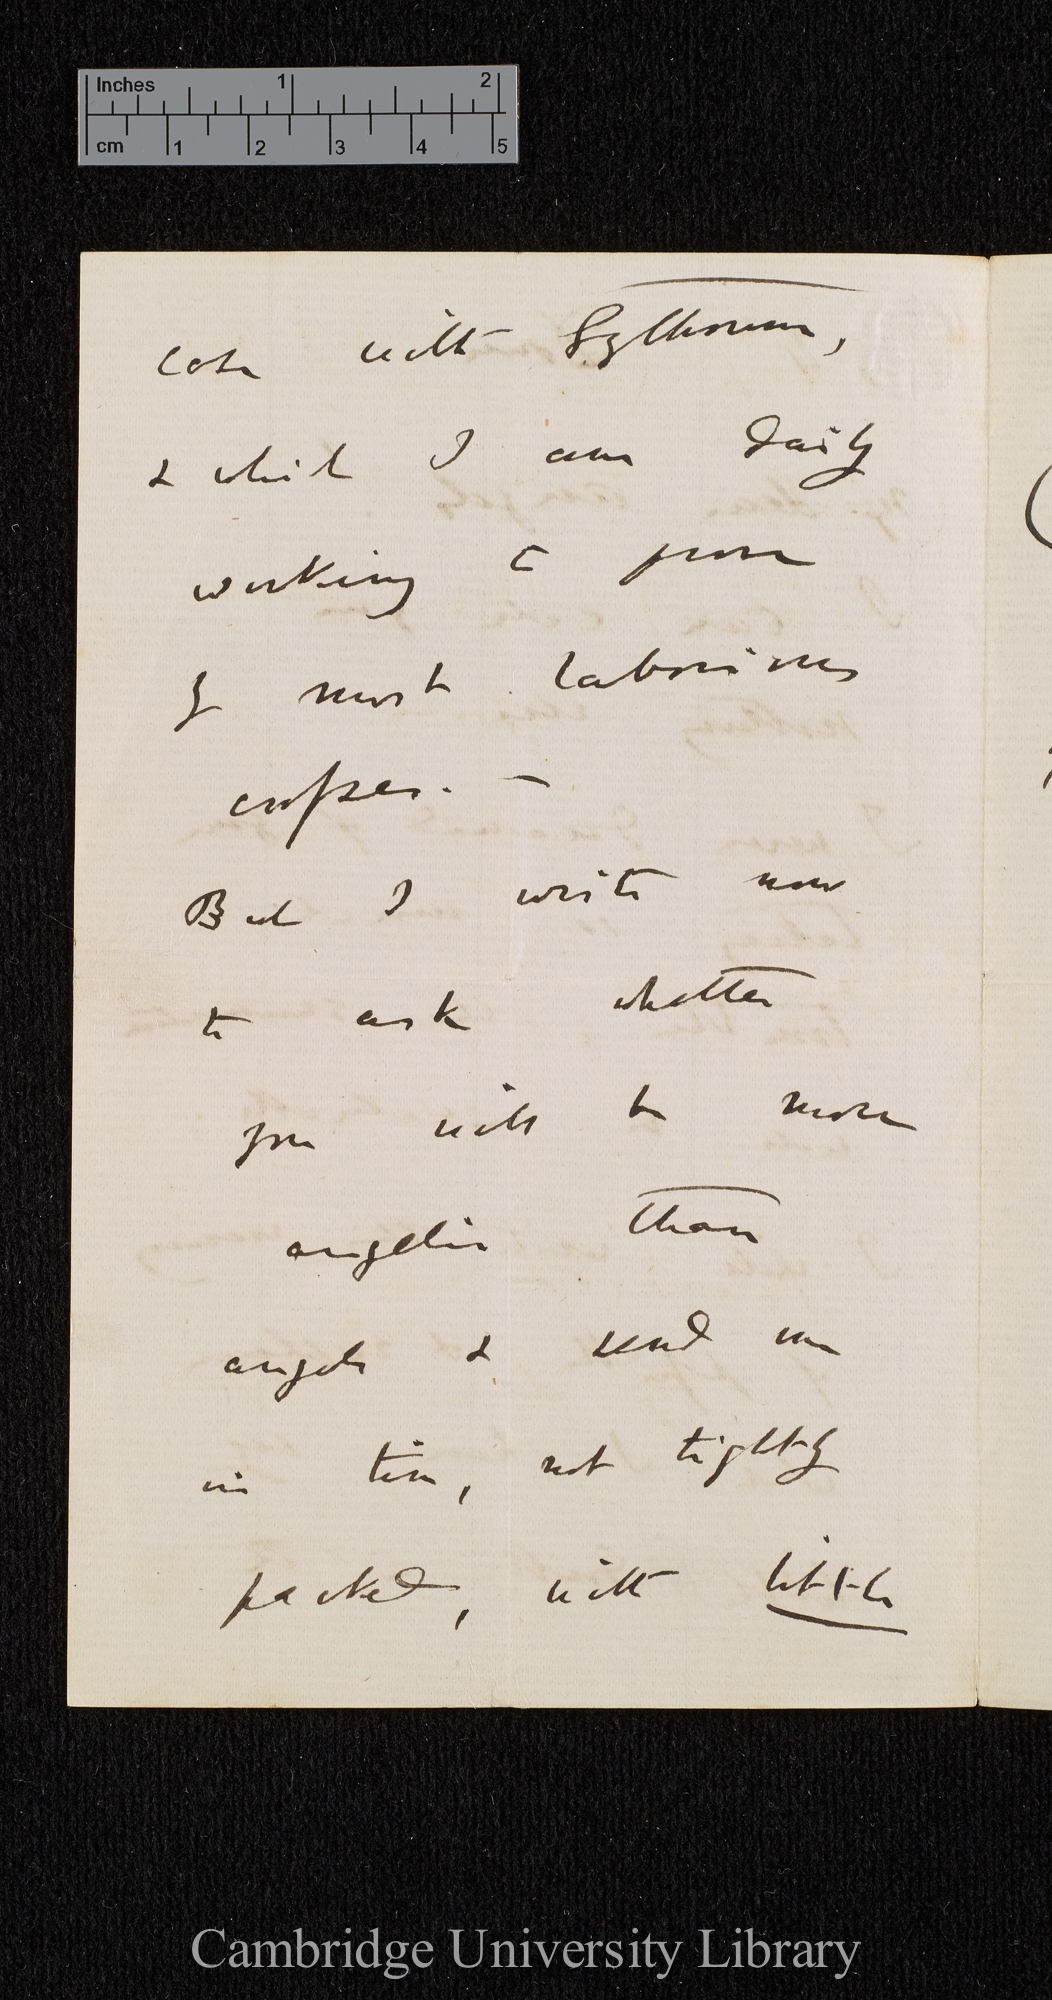 Inches 1 2
cm 1 2 3 4 5
case with Lythrum,
& which I am daily
working to prove
by most laborious
crosses. —
But I write now
to ask whether
you will be more
angelic than
angels & send me
in tin, not tightly
packed, with little
Cambridge University Library